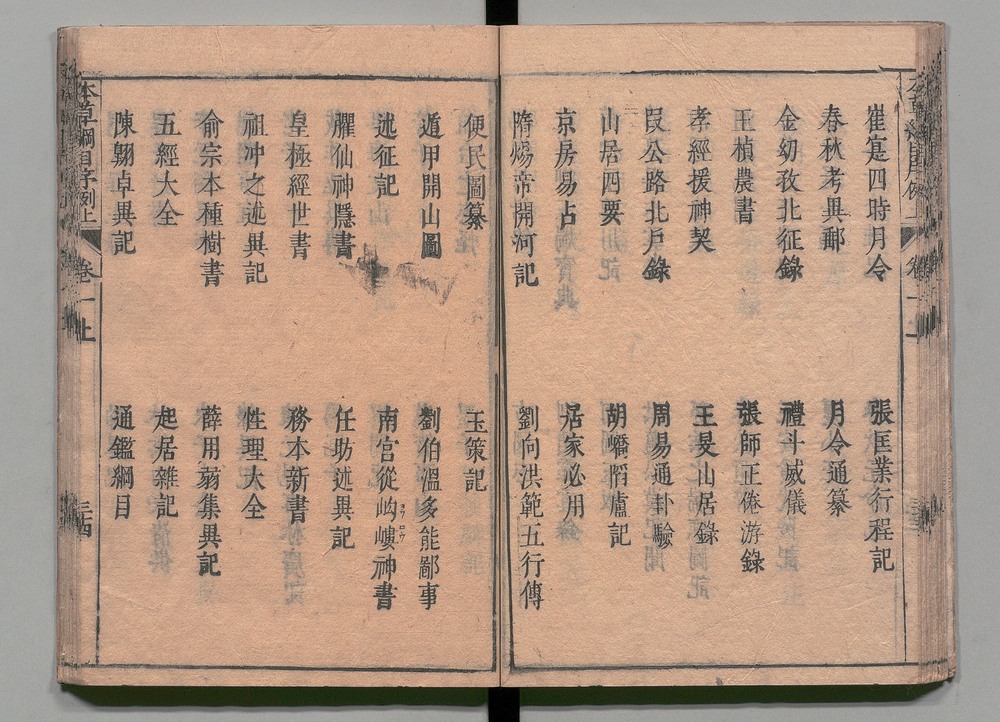 崔寔四時月令
張匡業行程記
春秋考異郵
月令通纂
金幼孜北征錄
禮斗威儀
王楨農書
張師正倦游錄
孝經援神契
王旻山居錄
段公路北戶錄
周易通卦驗
山居四要
胡嶠陷虜記
京房易占
居家必用
隋煬帝開河記
劉向洪範五行傳
便民圖纂
玉策記
遁甲開山圖
劉伯溫多能鄙事
述征記
南宮從岣嶁神書
コウ
ロウ
臞仙神隱書
任昉述異記
皇極經世書
務本新書
祖冲之述異記
性理大全
俞宗本種樹書
薛用弱集異記
五經大全
起居雜記
陳翺卓異記
通鑑綱目
本草綱目序例上 卷一上